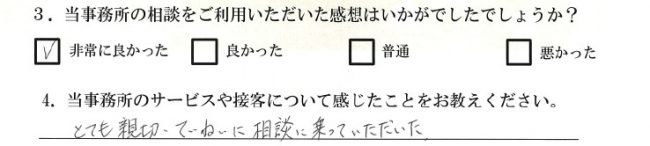 3．当事務所の相談をご利用いただいた感想はいかがでしたでしょうか？
☑ 非常に良かった　□ 良かった　□ 普通　□ 悪かった
4．当事務所のサービスや接客について感じたことをお教えください。
とても親切・ていねいに相談に乗っていただいた。